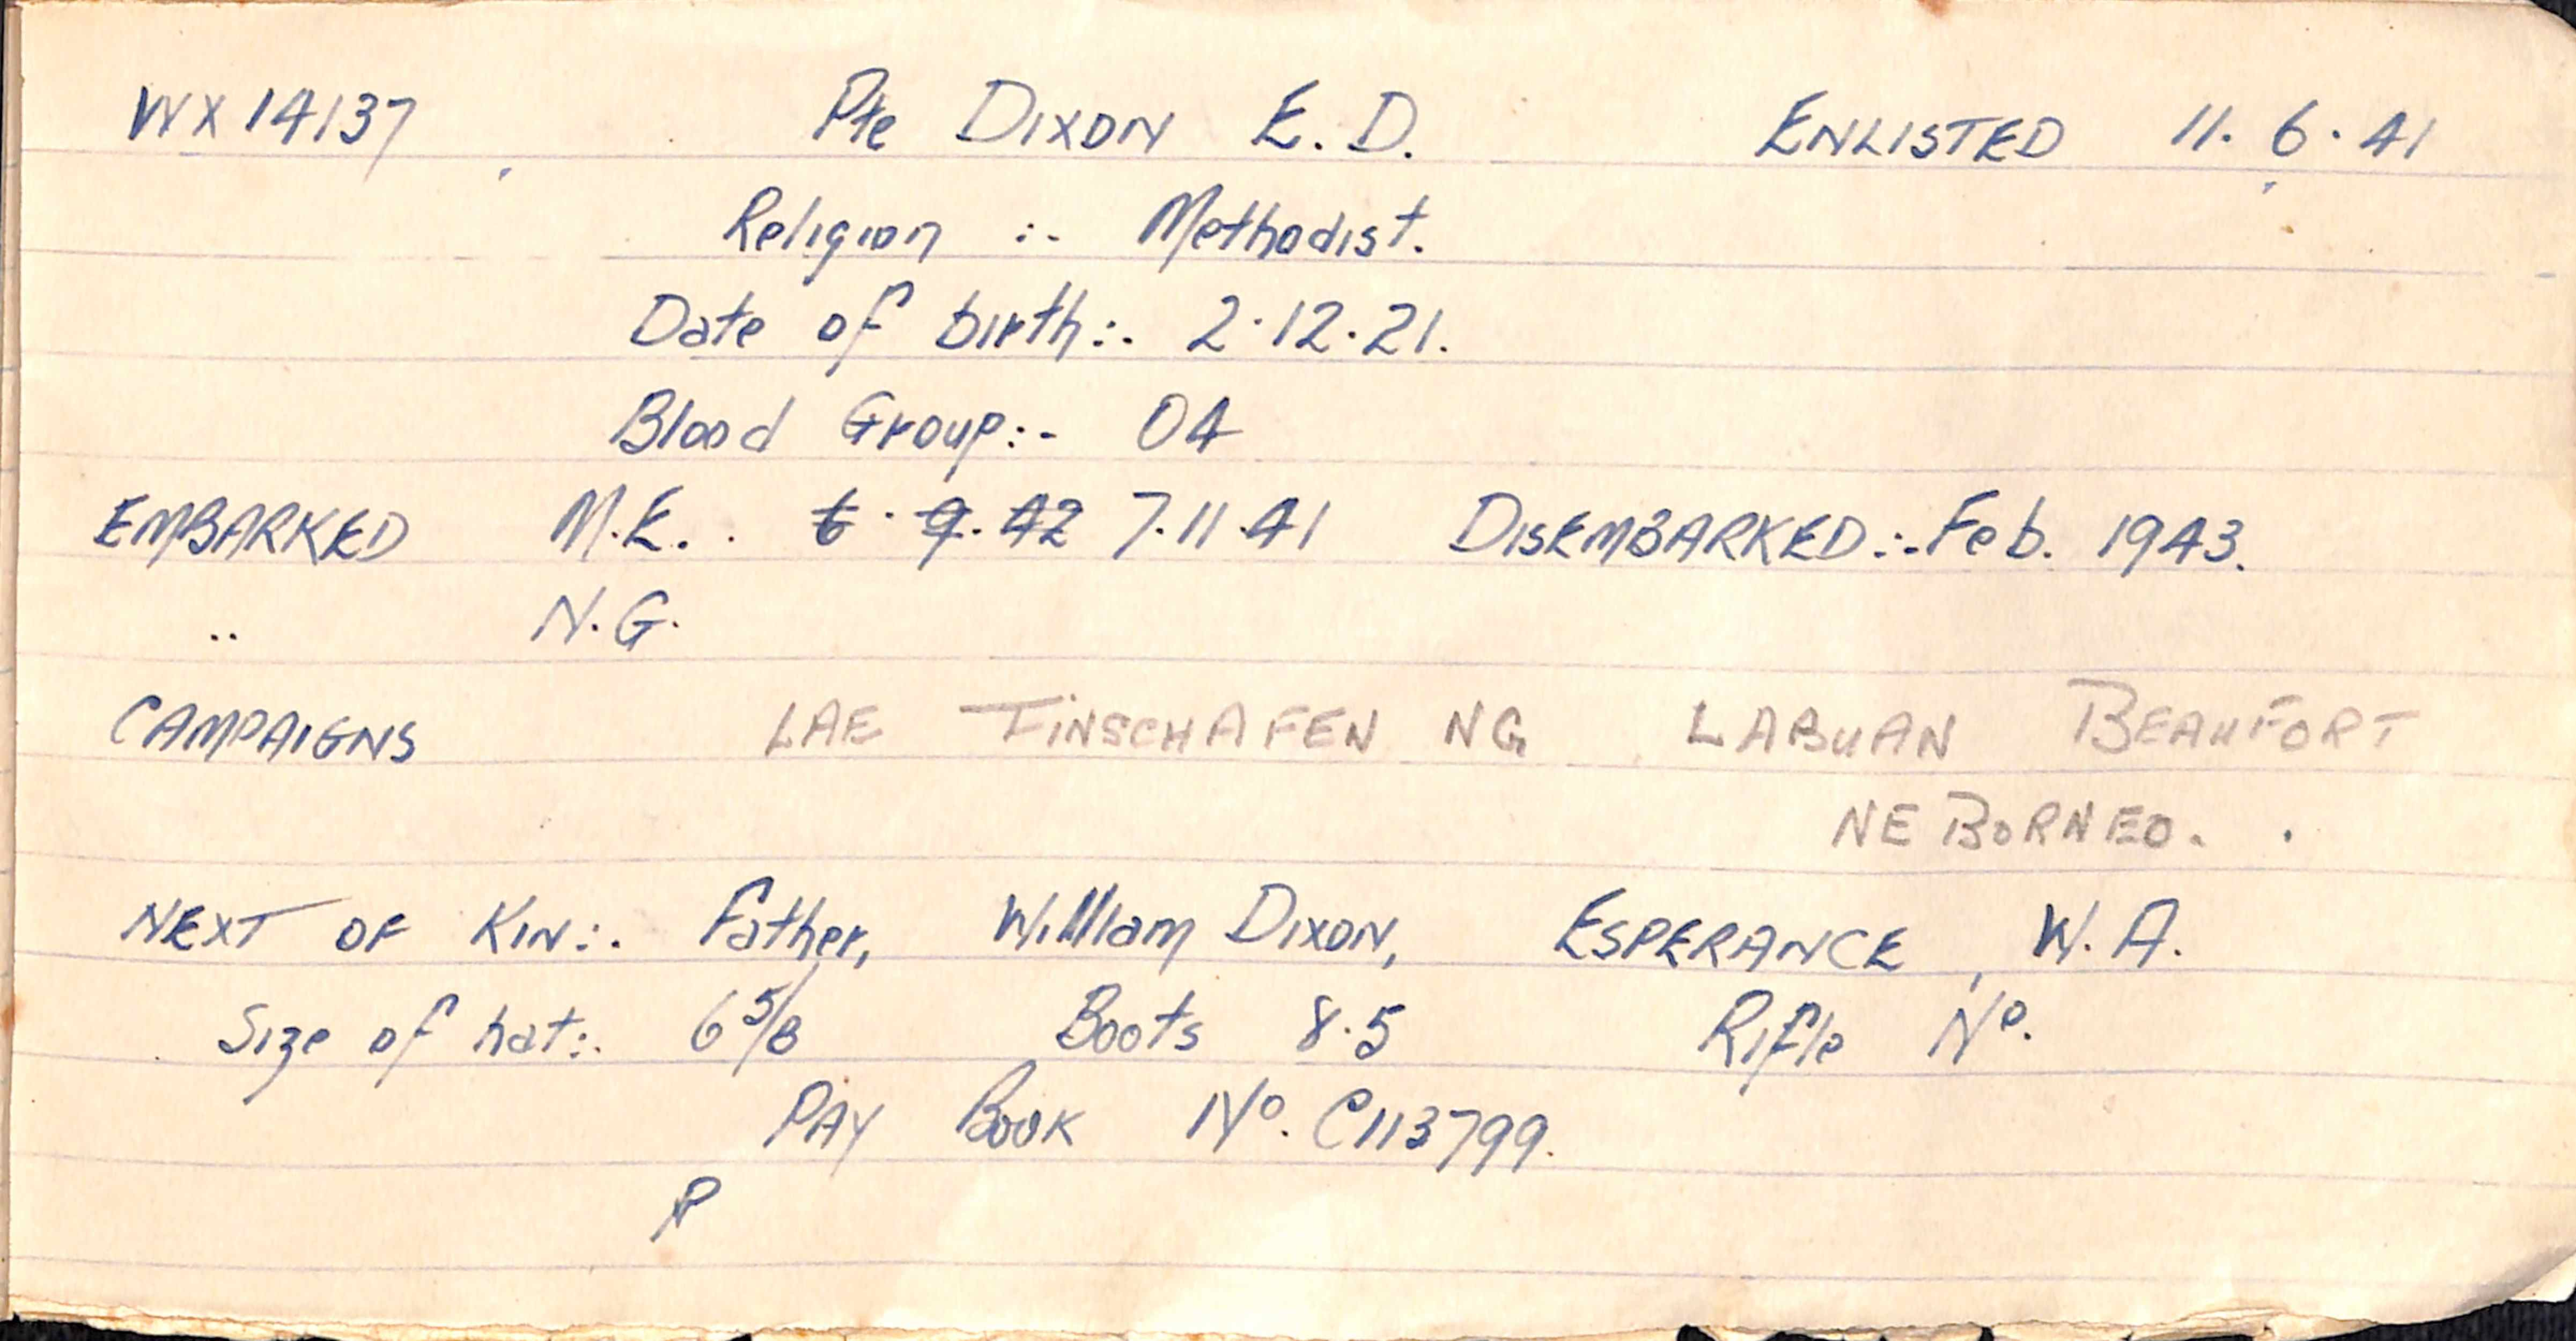 WX14137 Pte DIXON E. D. ENLISTED 11. 6. 41
Religion :- Methodist.
Date of birth:- 2.12.21.
Blood Group:- O4
EMBARKED M.E. . 6. 9. 42 7.11.41 DISEMBARKED:-Feb. 1943.
" N.G.
CAMPAIGNS LAE FINSCHAFEN NG LABUAN BEAUFORT
NE BORNEO.
NEXT OF KIN:- Father, William DIXON, ESPERANCE, W.A.
Size of hat:- 6 5/8 Boots 8.5 Rifle No.
PAY BOOK No. C113799.
P